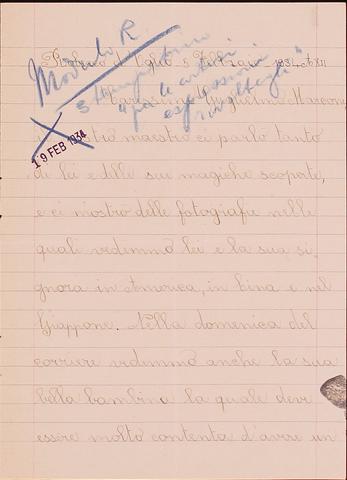 Modulo R
5 Febbraio 1934 A XII
Guglielmo Marconi
"per le cortesi
espressioni
19 FEB 1934
maestro ci parlò tanto
di lei e delle sue magiche scoperte,
e ci mostrò delle fotografie nelle
quali vedemmo lei e la sua si-
gnora in America, in Cina e nel
Giappone. Nella domenica del
corriere vedemmo anche la sua
bella bambina la quale deve
essere molto contenta d'avere un